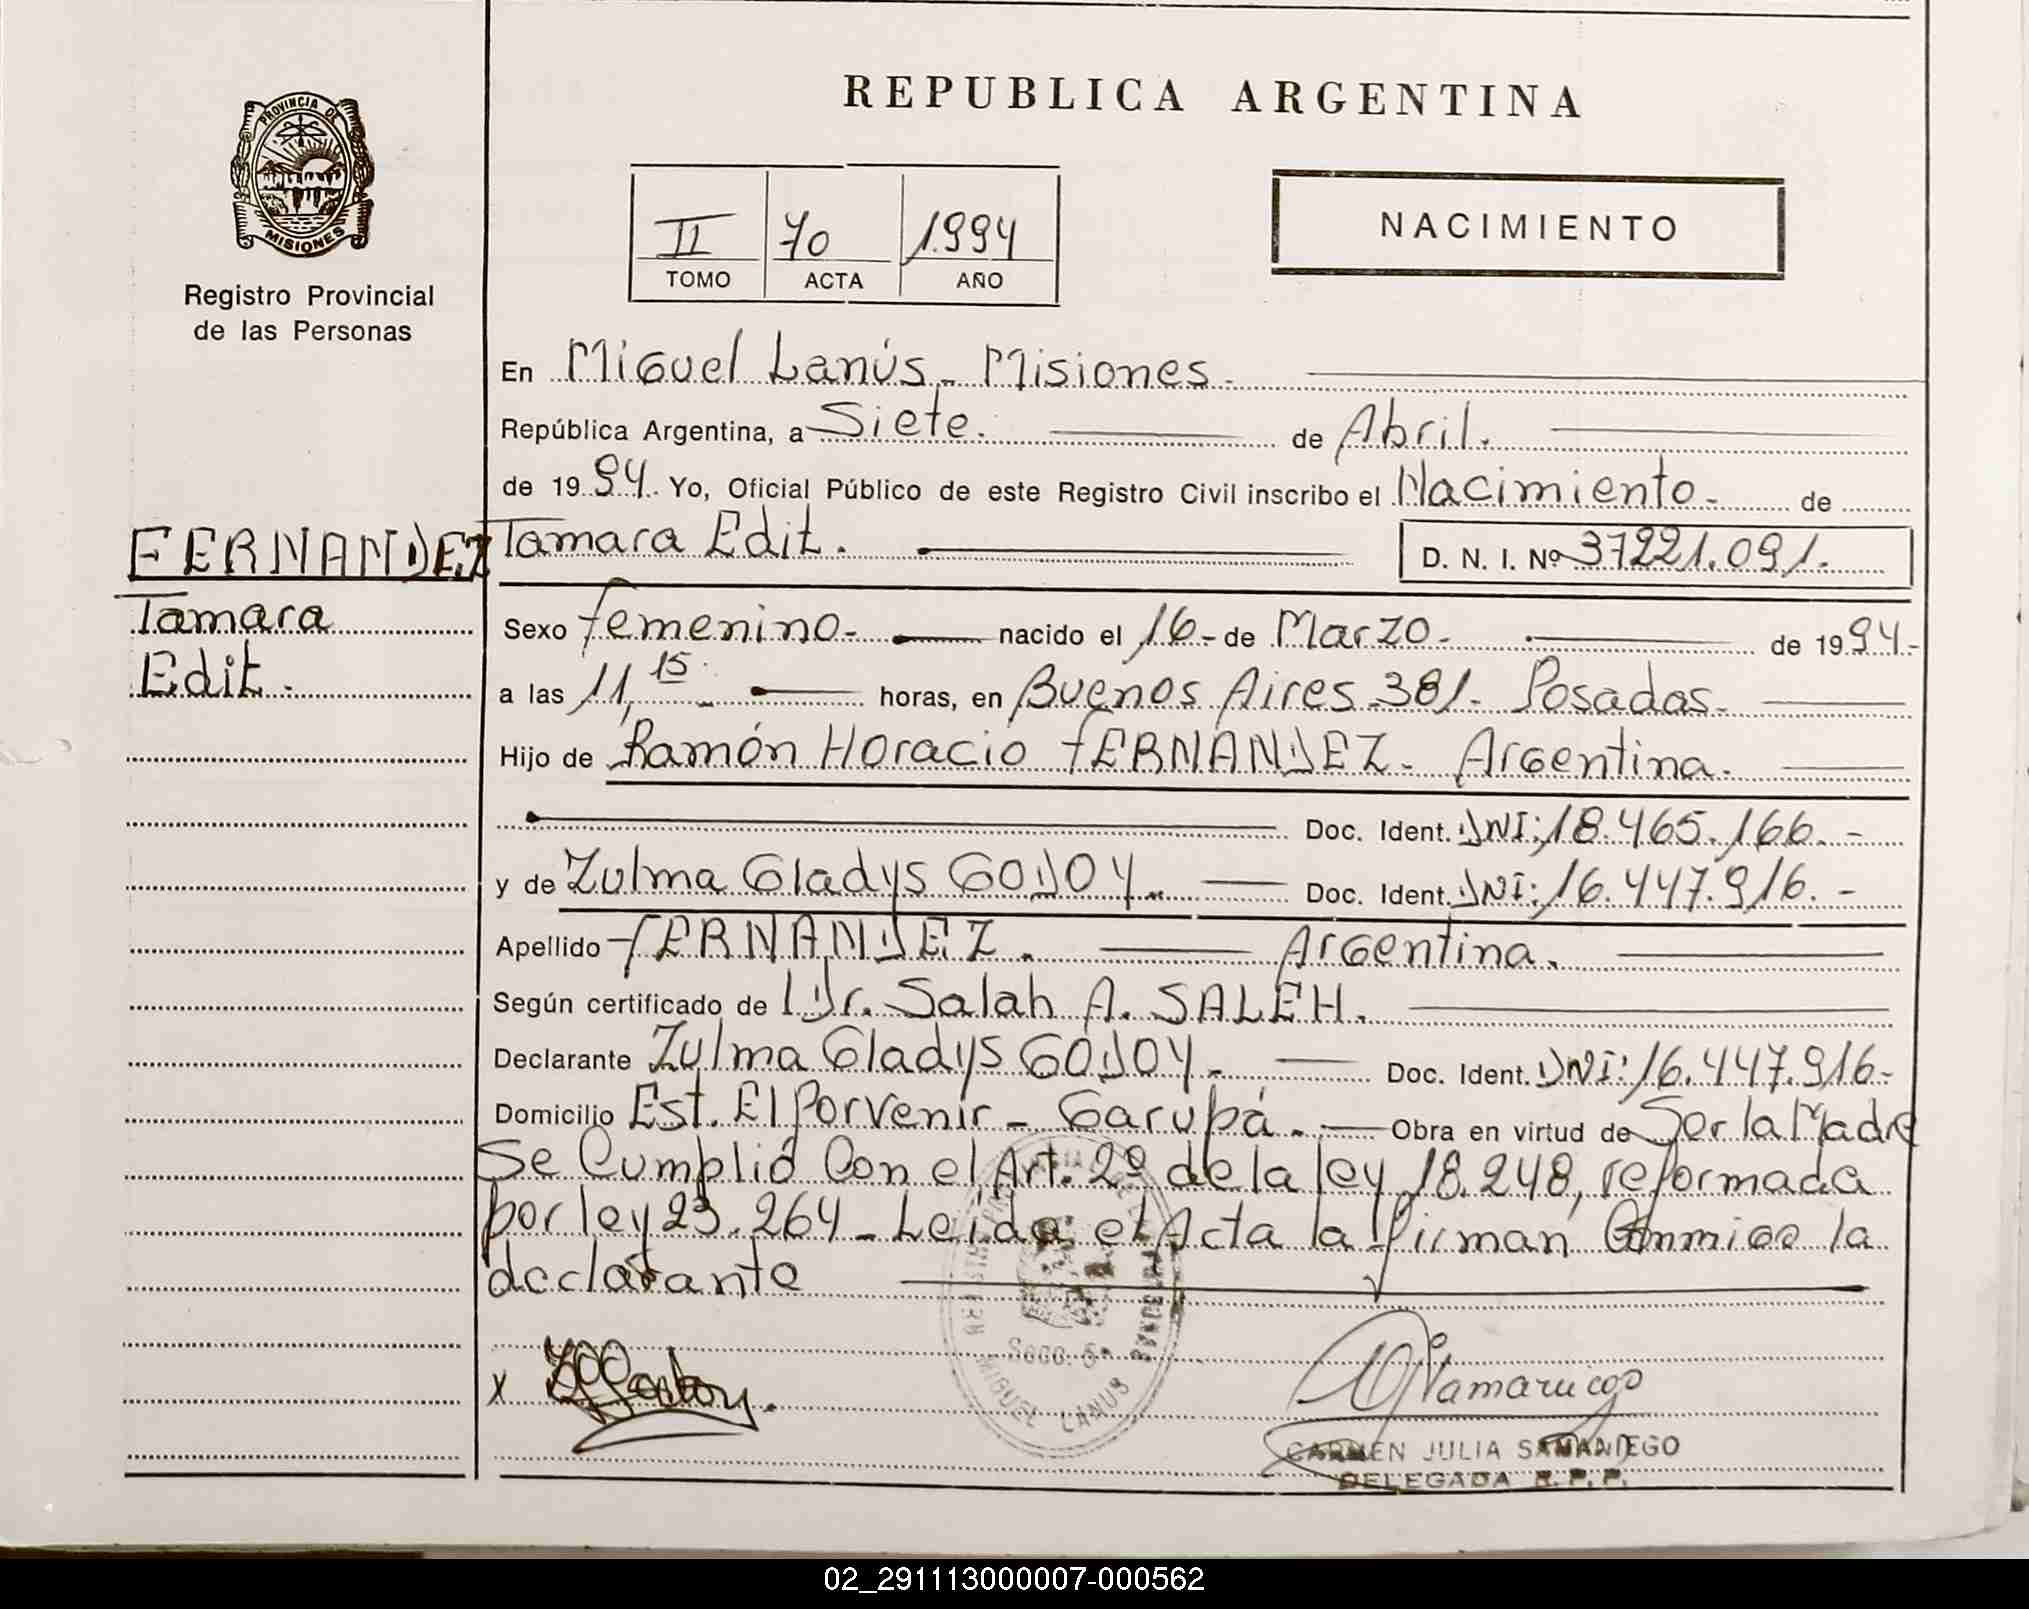 REPUBLICA ARGENTINA
PROVINCIA DE
MISIONES
Registro Provincial
de las Personas
II 70 1994
TOMO ACTA AÑO
NACIMIENTO
FERNANDEZ
Tamara
Edit.
En Miguel Lanús - Misiones -
República Argentina, a Siete. de Abril.
de 1994. Yo, Oficial Público de este Registro Civil inscribo el Nacimiento - de
Tamara Edit. D. N. I. Nº 37221.091.
Sexo femenino - nacido el 16 - de Marzo - de 1994.-
a las 11,15 horas, en Buenos Aires 381 - Posadas -
Hijo de Ramón Horacio FERNANDEZ - Argentina.
Doc. Ident. DNI: 18.465.166.-
y de Zulma Gladys GODOY - Doc. Ident. DNI: 16.447.916.-
Apellido FERNANDEZ. Argentina.
Según certificado de Dr. Salah A. SALEH.
Declarante Zulma Gladys GODOY - Doc. Ident. DNI: 16.447.916-
Domicilio Est. El Porvenir - Garupá. - Obra en virtud de Ser la Madre
Se Cumplió Con el Art. 2º de la ley 18.248, reformada
por ley 23.264 - Leida el Acta la firman Conmigo la
declarante
Secc. 5ª
MIGUEL LANUS
x
CARMEN JULIA SAMANIEGO
DELEGADA R. P. P.
02_291113000007-000562